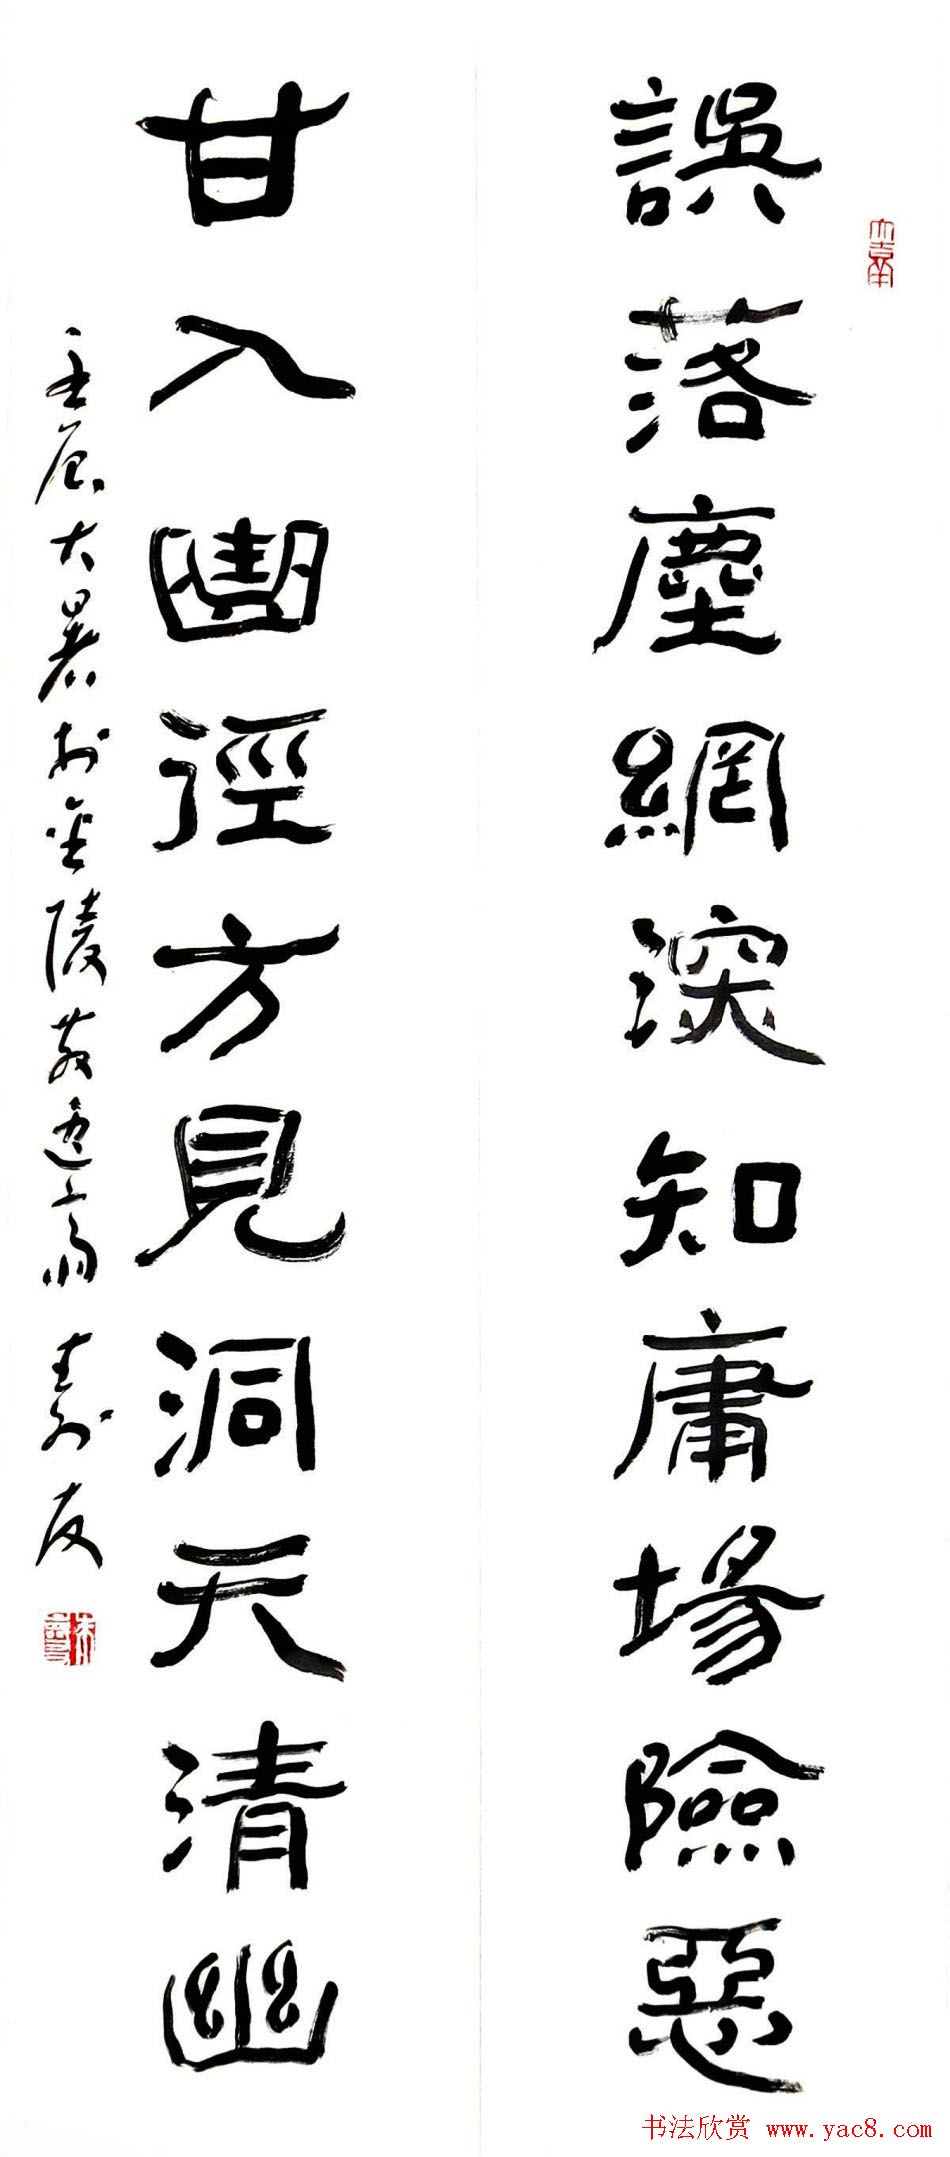 誤落塵網深知庸場險惡
甘入徑方見洞天清幽
壬辰大暑於金陵齋友
书法欣赏 www.yac8.com